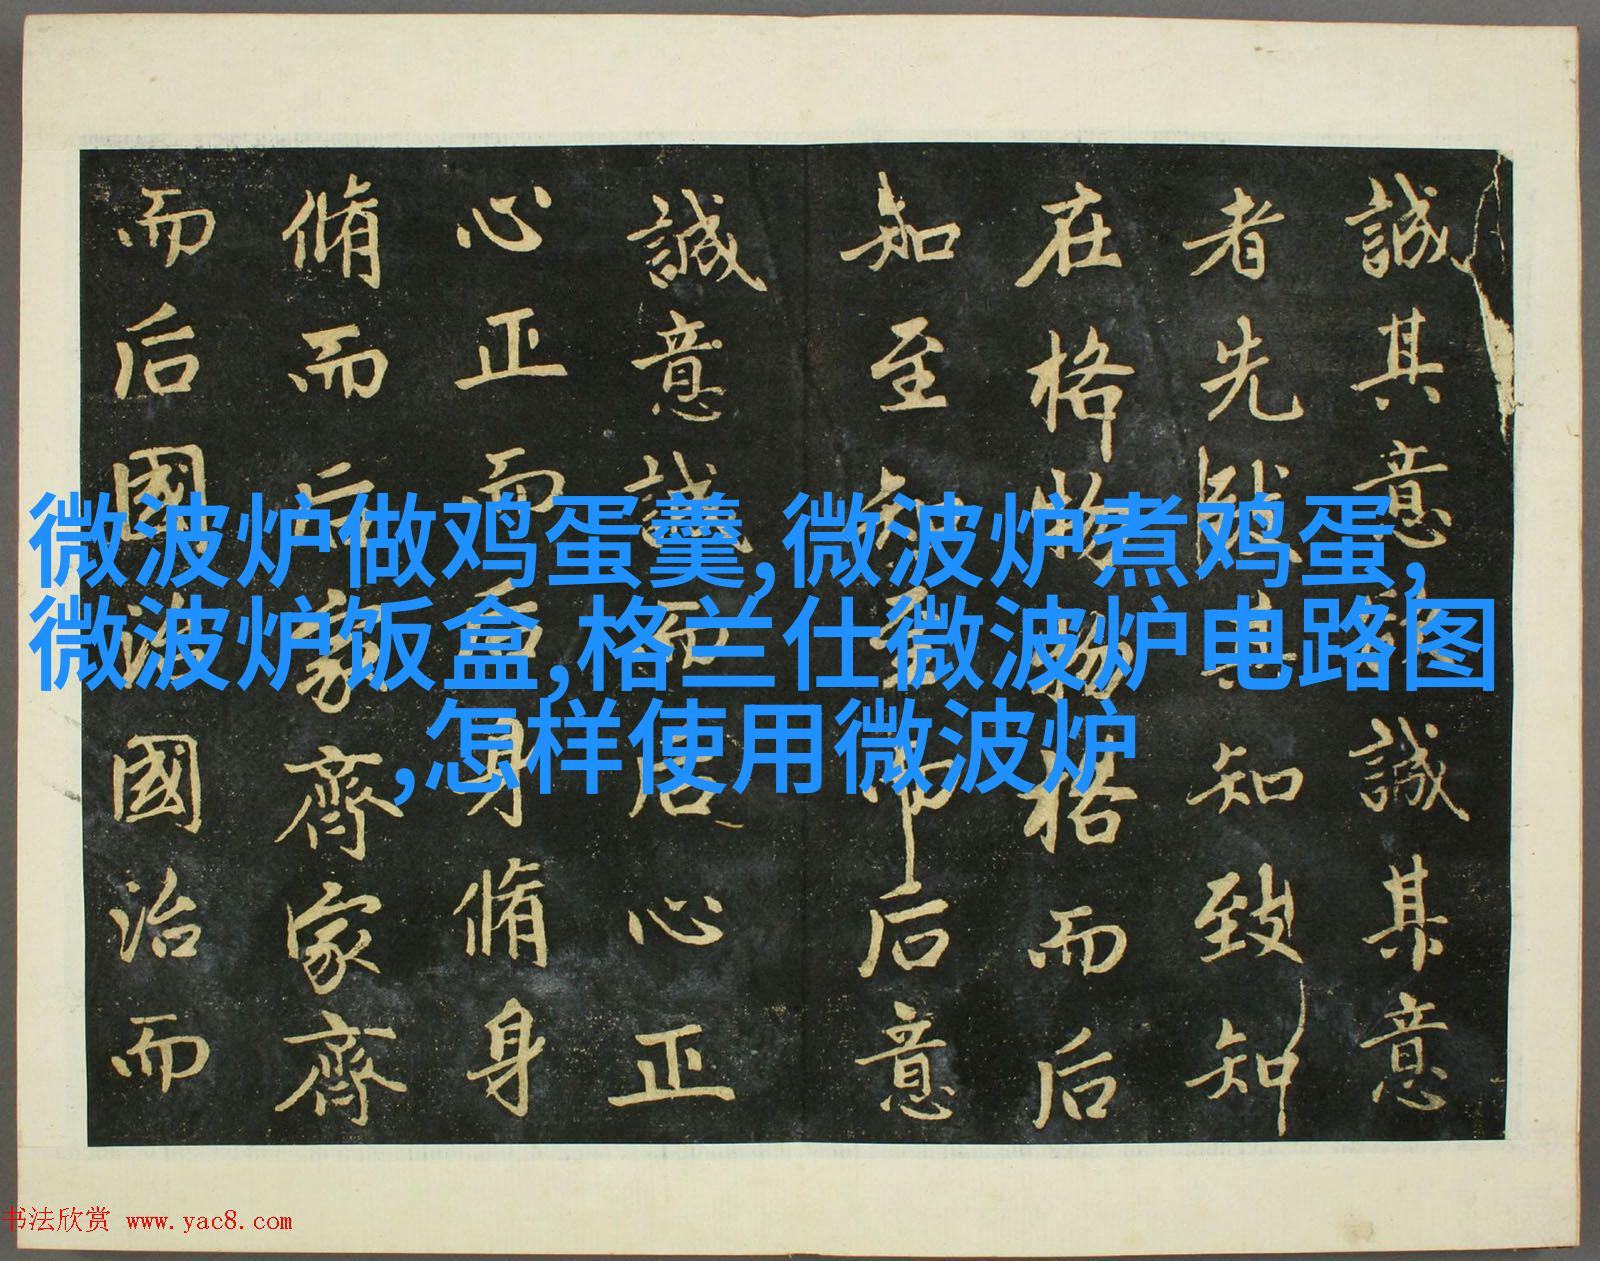 誠其意誠其意
者先致其知致知
在格物物格而后
知至知至而后意
誠意誠而后心正
心正而后身脩身
脩而后家齊家齊
而后國治國治而
微波炉做鸡蛋羹,微波炉煮鸡蛋,
微波炉饭盒,格兰仕微波炉电路图
,怎样使用微波炉
书法欣赏 www.yac8.com